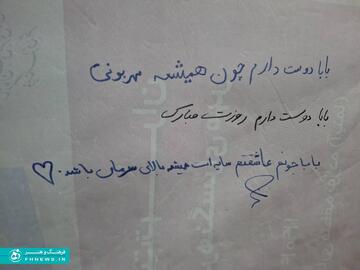 بابا دوست دارم چون همیشه مهربونی
بابا دوست دارم روزت مبارک
بابا جونم عاشقتم سایه ات همیشه بالای سرمان باشد.
فرهنگ و هنر
FHNEWS.IR